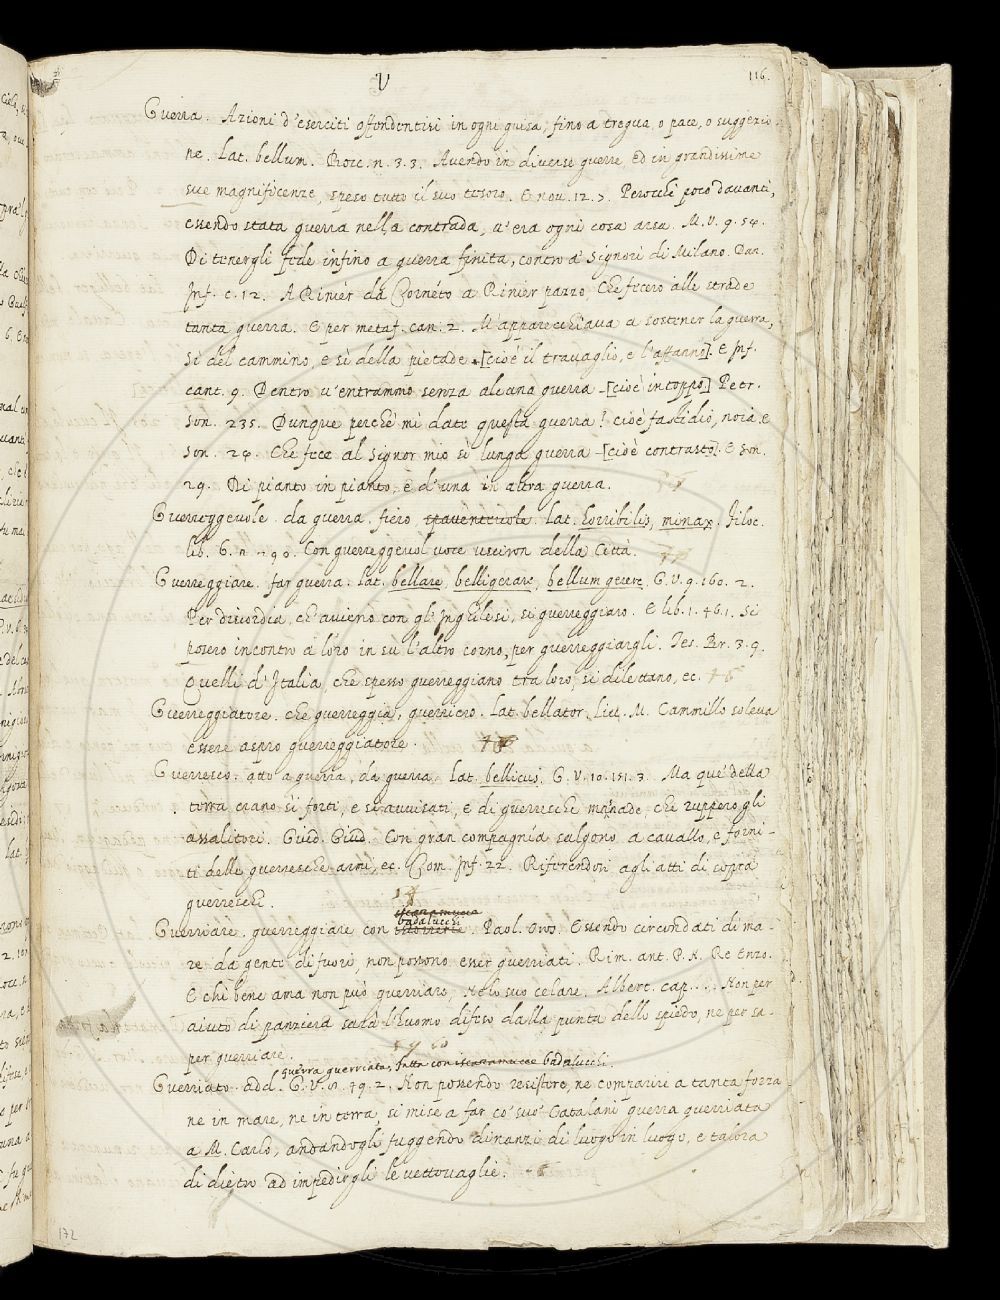 116.
V
Guerra. Azioni d'eserciti offendentisi in ogni guisa, fino a tregua, o pace, o suggezio
ne. Lat. bellum. Bocc. n. 3. 3. Avendo in diverse guerre, ed in grandissime
sue magnificenze, speso tutto il suo tesoro. E nov. 12. 7. Perocchè poco davanti,
essendo stata guerra nella contrada, v'era ogni cosa arsa. M. V. 9. 54.
Di tenergli fede infino a guerra finita, contro a' Signori di Milano. Dan.
Inf. c. 12. A Rinier da Cornéto a Rinier pazzo, Che fecero alle strade
tanta guerra. E per metaf. can. 2. M'apparecchiava a sostener la guerra,
Sì del cammino, e sì della pietade [cioè il travaglio, e l'affanno]. E Inf.
cant. 9. Dentro v'entrammo senza alcuna guerra [cioè intoppo] Petr.
son. 235. Dunque perchè mi date questa guerra? cioè fastidio, noia. E
son. 24. Che fece al Signor mio sì lunga guerra [cioè contrasto]. E son.
29. Di pianto in pianto, e d'una in altra guerra.
Guerreggevole. da guerra. fiero, spaventevole. Lat. horribilis, minax. Filoc.
lib. 6. n. 290. Con guerreggevol voce usciron della Città.
Guerreggiare. far guerra. Lat. bellare, belligerare, bellum gerere. G. V. 9. 160. 2.
Per discordia, ch'avieno con gl'Inghilesi, si guerreggiaro. E lib. 1. 46. 1. Si
posero incontro a loro in sù l'altro corno, per guerreggiargli. Tes. Br. 3. 9.
Quelli d'Italia, che spesso guerreggiano tra loro, si dilettano, ec. 46
Guerreggiatore. che guerreggia, guerriero. Lat. bellator. Liv. M. Cammillo soleva
essere aspro guerreggiatore.
Guerresco. atto a guerra, da guerra. Lat. bellicus. G. V. 10. 151. 3. Ma que' della
terra erano sì forti, e sì avvisati, e di guerresche masnade, che ruppero gli
assalitori. Guid. Giud. Con gran compagnía salgono a cavallo, e forni-
ti delle guerresche armi, ec. Com. Inf. 22. Riferendosi agli atti di sopra
guerreschi.
scaramucce
badalucchi
Guerriare. guerreggiare con . Paol. Oros. Essendo circondati di ma-
re da gente di fuori, non possono esser guerriati. Rim. ant. P. N. Re Enzo.
E chi bene ama non può guerriare, Nelo suo celare. Albert. cap.... Non per
aiuto di panziera sarà l'huomo difeso dalla punta dello spiedo, ne per sa-
per guerriare.
guerra guerriata, fatta con iscaramucce badalucchi.
Guerriato. add. G. V. 8. 49. 2. Non possendo resistere, ne comparire a tanta forza
ne in mare, ne in terra, si mise a far co' suo' Catalani guerra guerriata
a M. Carlo, andandogli fuggendo dinanzi di luogo in luogo, e talora
di dietro ad impedirgli le vettovaglie.
172